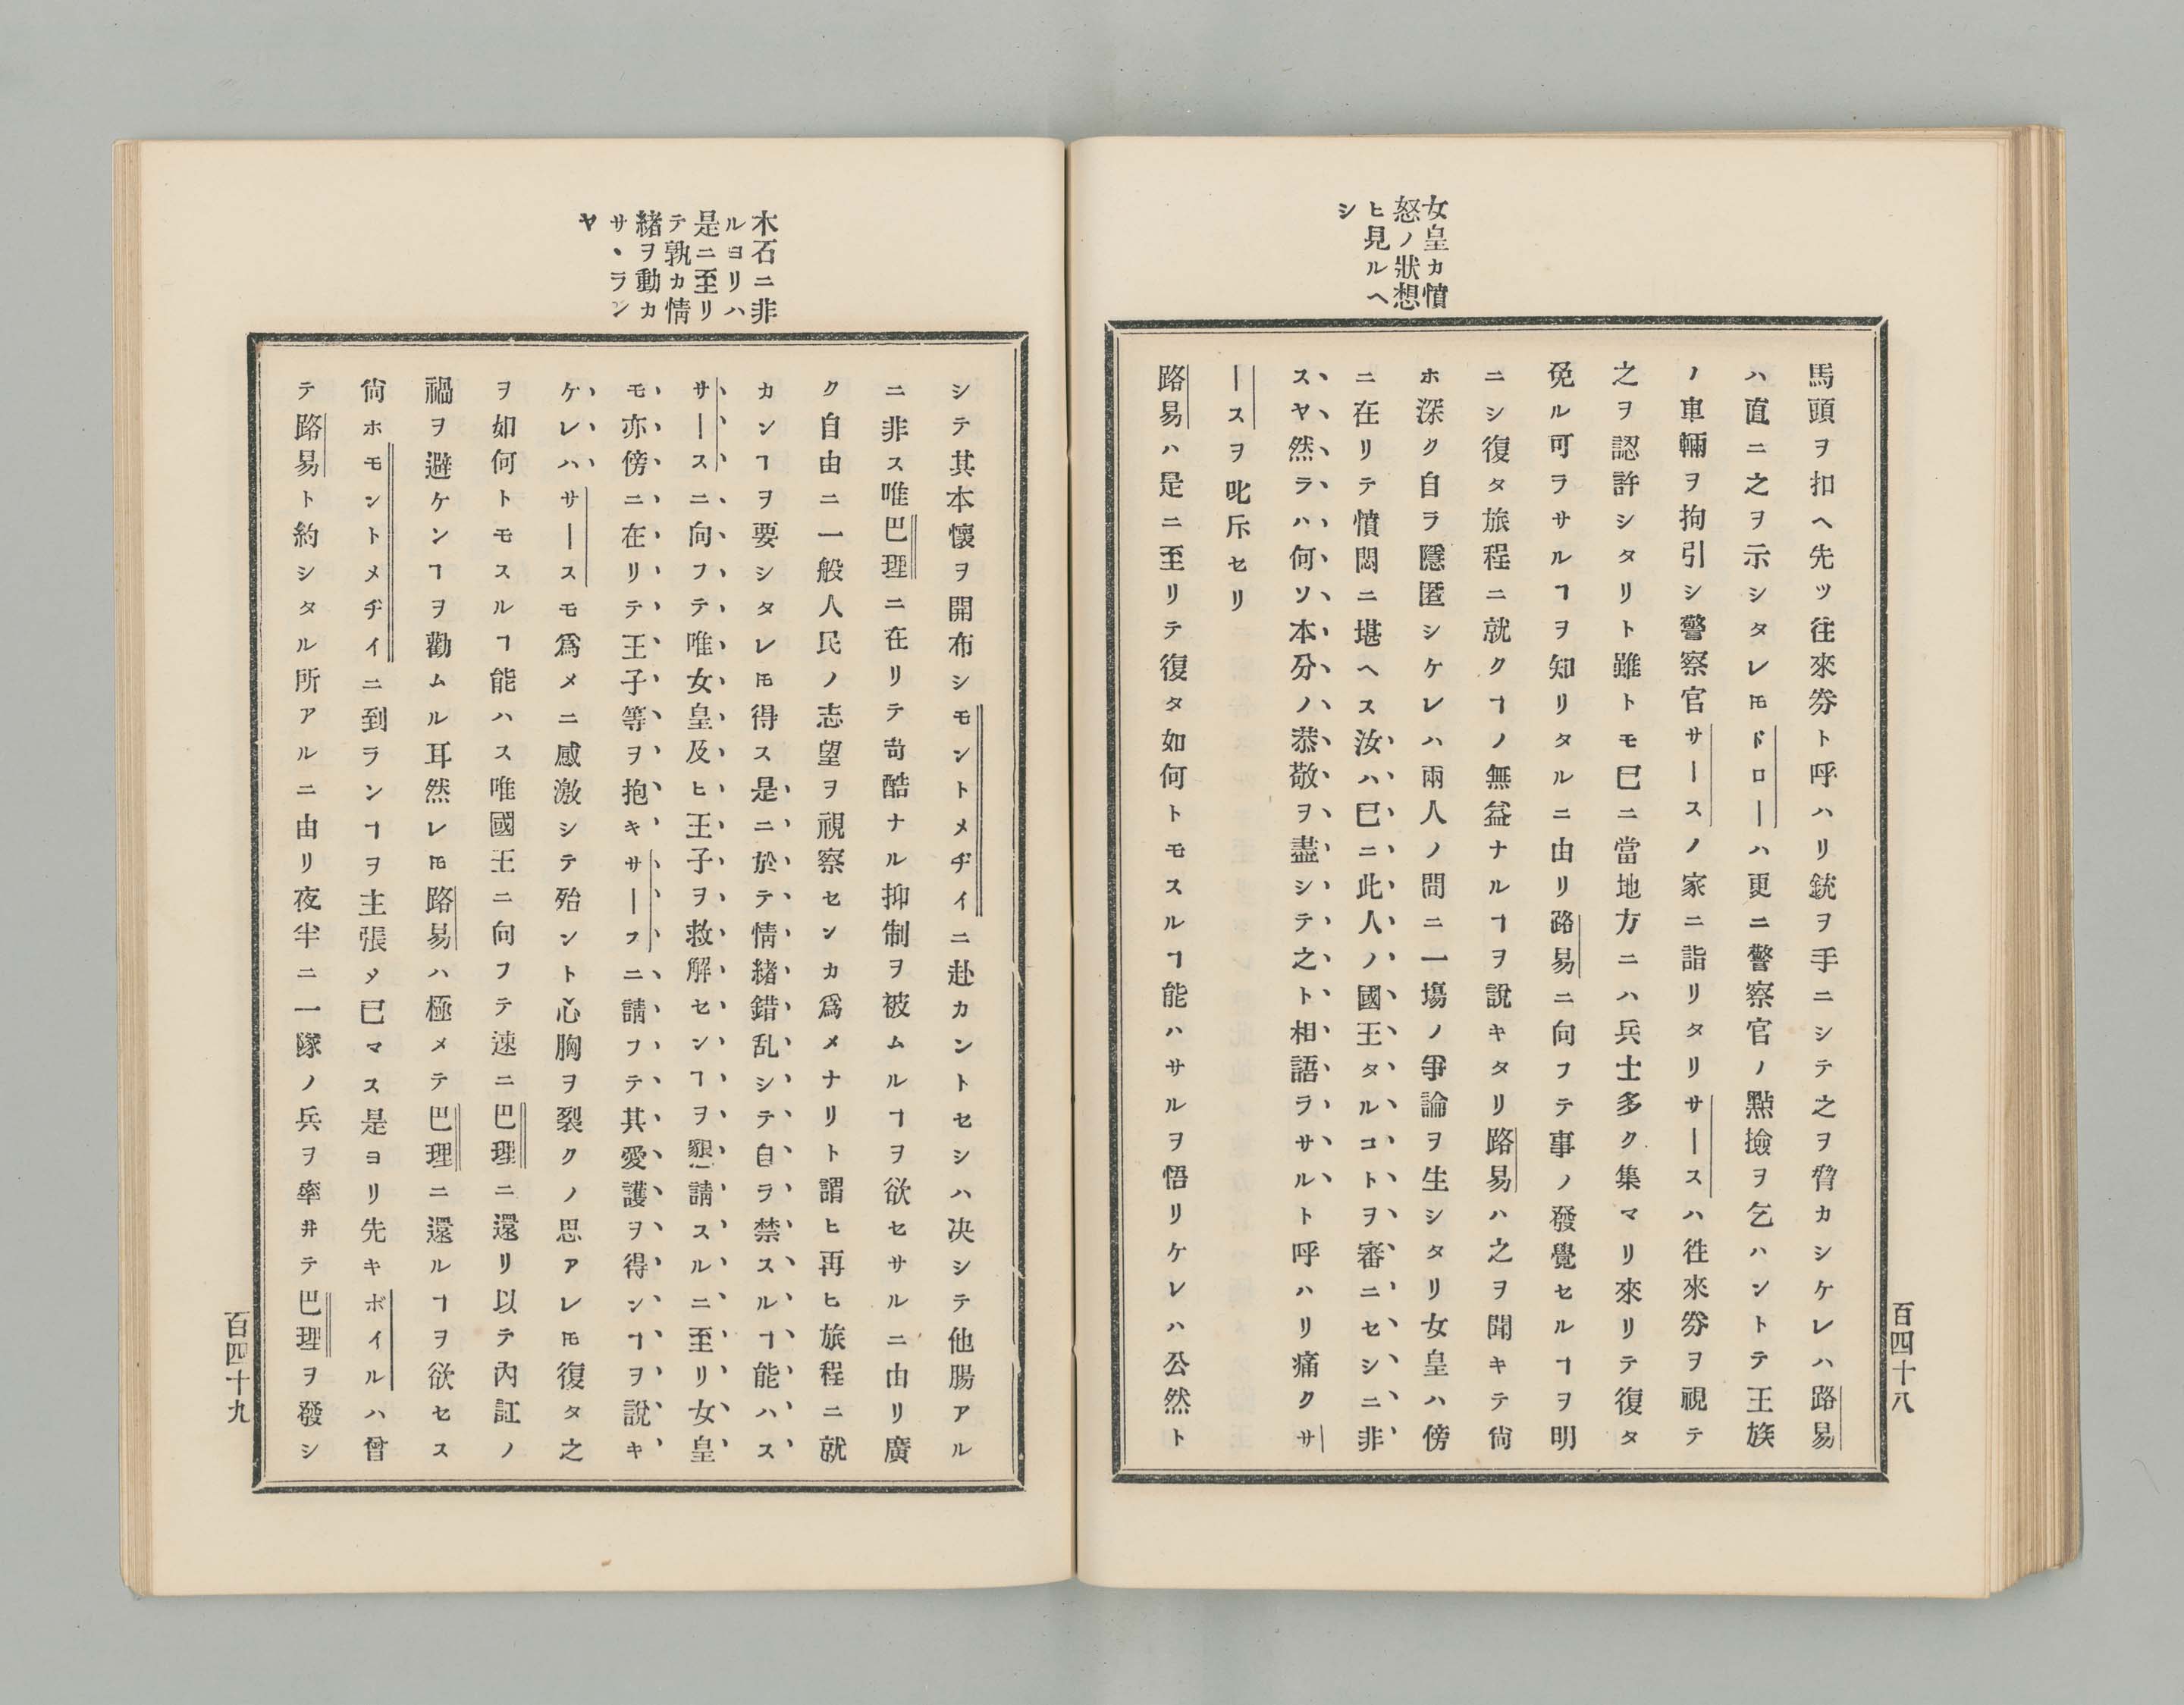 女皇カ憤
怒ノ狀想
ヒ見ルヘ
シ
馬頭ヲ扣ヘ先ツ往來券ト呼ハリ銃ヲ手ニシテ之ヲ脅カシケレハ路易
ハ直ニ之ヲ示シタレ𪜈ドロｰハ更ニ警察官ノ點撿ヲ乞ハントテ王族
ノ車輛ヲ拘引シ警察官サｰスノ家ニ詣リタリサｰスハ徃來券ヲ視テ
之ヲ認許シタリト雖トモ已ニ當地方ニハ兵士多ク集マリ來リテ復タ
免ル可ヲサルヿヲ知リタルニ由リ路易ニ向フテ事ノ發覺セルヿヲ明
ニシ復タ旅程ニ就クヿノ無益ナルヿヲ說キタリ路易ハ之ヲ聞キテ尙
ホ深ク自ラ隱匿シケレハ兩人ノ間ニ一塲ノ爭論ヲ生シタリ女皇ハ傍
ニ在リテ憤悶ニ堪ヘス汝ハ已ニ此人ノ國王タルコトヲ審ニセシニ非
スヤ然ラハ何ソ本分ノ恭敬ヲ盡シテ之ト相語ラサルト呼ハリ痛クサ
ｰスヲ叱斥セリ
路易ハ是ニ至リテ復タ如何トモスルヿ能ハサルヲ悟リケレハ公然ト
百四十八
木石ニ非
ルヨリハ
是ニ至リ
テ孰カ情
緒ヲ動カ
サヽラン
ヤ
シテ其本懷ヲ開布シモントメヂイニ赴カントセシハ决シテ他腸アル
ニ非ス唯巴理ニ在リテ苛酷ナル抑制ヲ被ムルヿヲ欲セサルニ由リ廣
ク自由ニ一般人民ノ志望ヲ視察センカ爲メナリト謂ヒ再ヒ旅程ニ就
カンヿヲ要シタレ𪜈得ス是ニ於テ情緖錯乱シテ自ラ禁スルヿ能ハス
サｰスニ向フテ唯女皇及ヒ王子ヲ救解センヿヲ懇請スルニ至リ女皇
モ亦傍ニ在リテ王子等ヲ抱キサｰフニ請フテ其愛護ヲ得ンヿヲ說キ
ケレハサｰスモ爲メニ感激シテ殆ント心胸ヲ裂クノ思アレ𪜈復タ之
ヲ如何トモスルヿ能ハス唯國王ニ向フテ速ニ巴理ニ還リ以テ內訌ノ
禍ヲ避ケンヿヲ勸ムル耳然レ𪜈路易ハ極メテ巴理ニ還ルヿヲ欲セス
尙ホモントメヂイニ到ランヿヲ主張メ已マス是ヨリ先キボイルハ曾
テ路易ト約シタル所アルニ由リ夜半ニ一隊ノ兵ヲ率井テ巴理ヲ發シ
百四十九